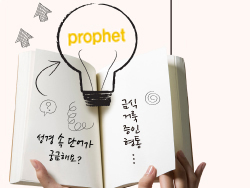 prophet
성경 속 단어가
궁금해요?
금식
거룩
증인
형통
⋮